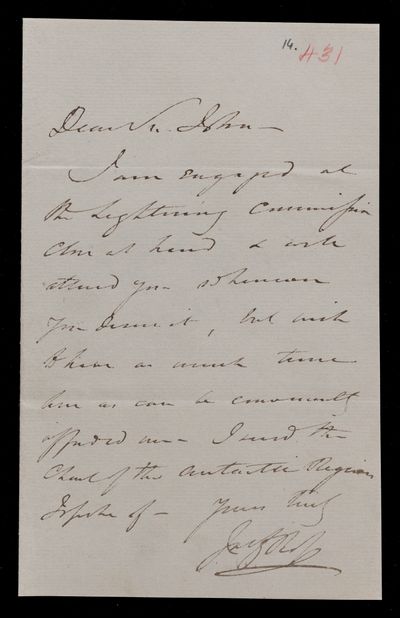 14. 431
Dear Sir John —
I am engaged at
the Lightning Commission
close at hand & will
attend you whenever
you desire it, but wish
to have as much time
here as can be conveniently
afforded me — I send the
Chart of the Antarctic Regions
I spoke of — Yours truly
Jas C Ross